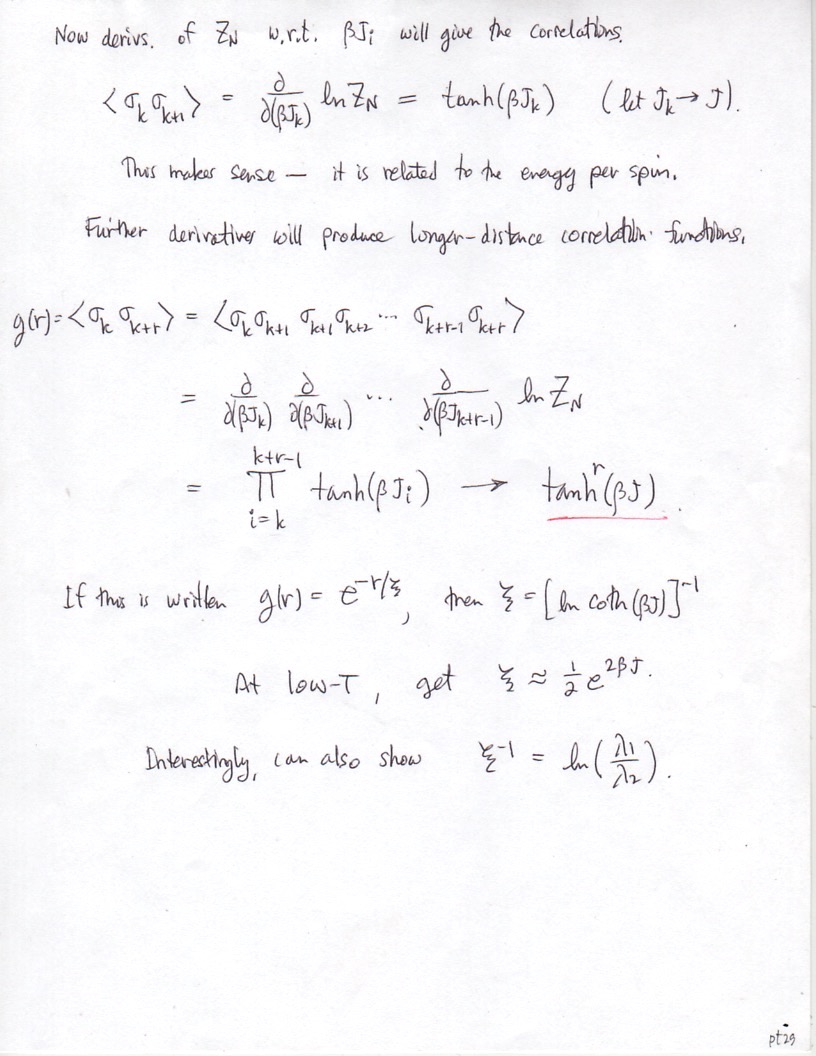 Now derivs. of Z_N w.r.t. βJ_i will give the correlations.
⟨σ_k σ_{k+1}⟩ = ∂/∂(βJ_k) ln Z_N = tanh(βJ_k) (let J_k → J).
This makes sense — it is related to the energy per spin.
Further derivatives will produce longer-distance correlation functions.
g(r) = ⟨σ_k σ_{k+r}⟩ = ⟨σ_k σ_{k+1} σ_{k+1} σ_{k+2} ⋯ σ_{k+r-1} σ_{k+r}⟩
= ∂/∂(βJ_k) ∂/∂(βJ_{k+1}) ⋯ ∂/∂(βJ_{k+r-1}) ln Z_N
= ∏_{i=k}^{k+r-1} tanh(βJ_i) → tanh^r(βJ).
If this is written g(r) = e^{-r/ξ}, then ξ = [ln coth(βJ)]^{-1}
At low-T, get ξ ≈ 1/2 e^{2βJ}.
Interestingly, can also show ξ^{-1} = ln(λ_1/λ_2).
pt29